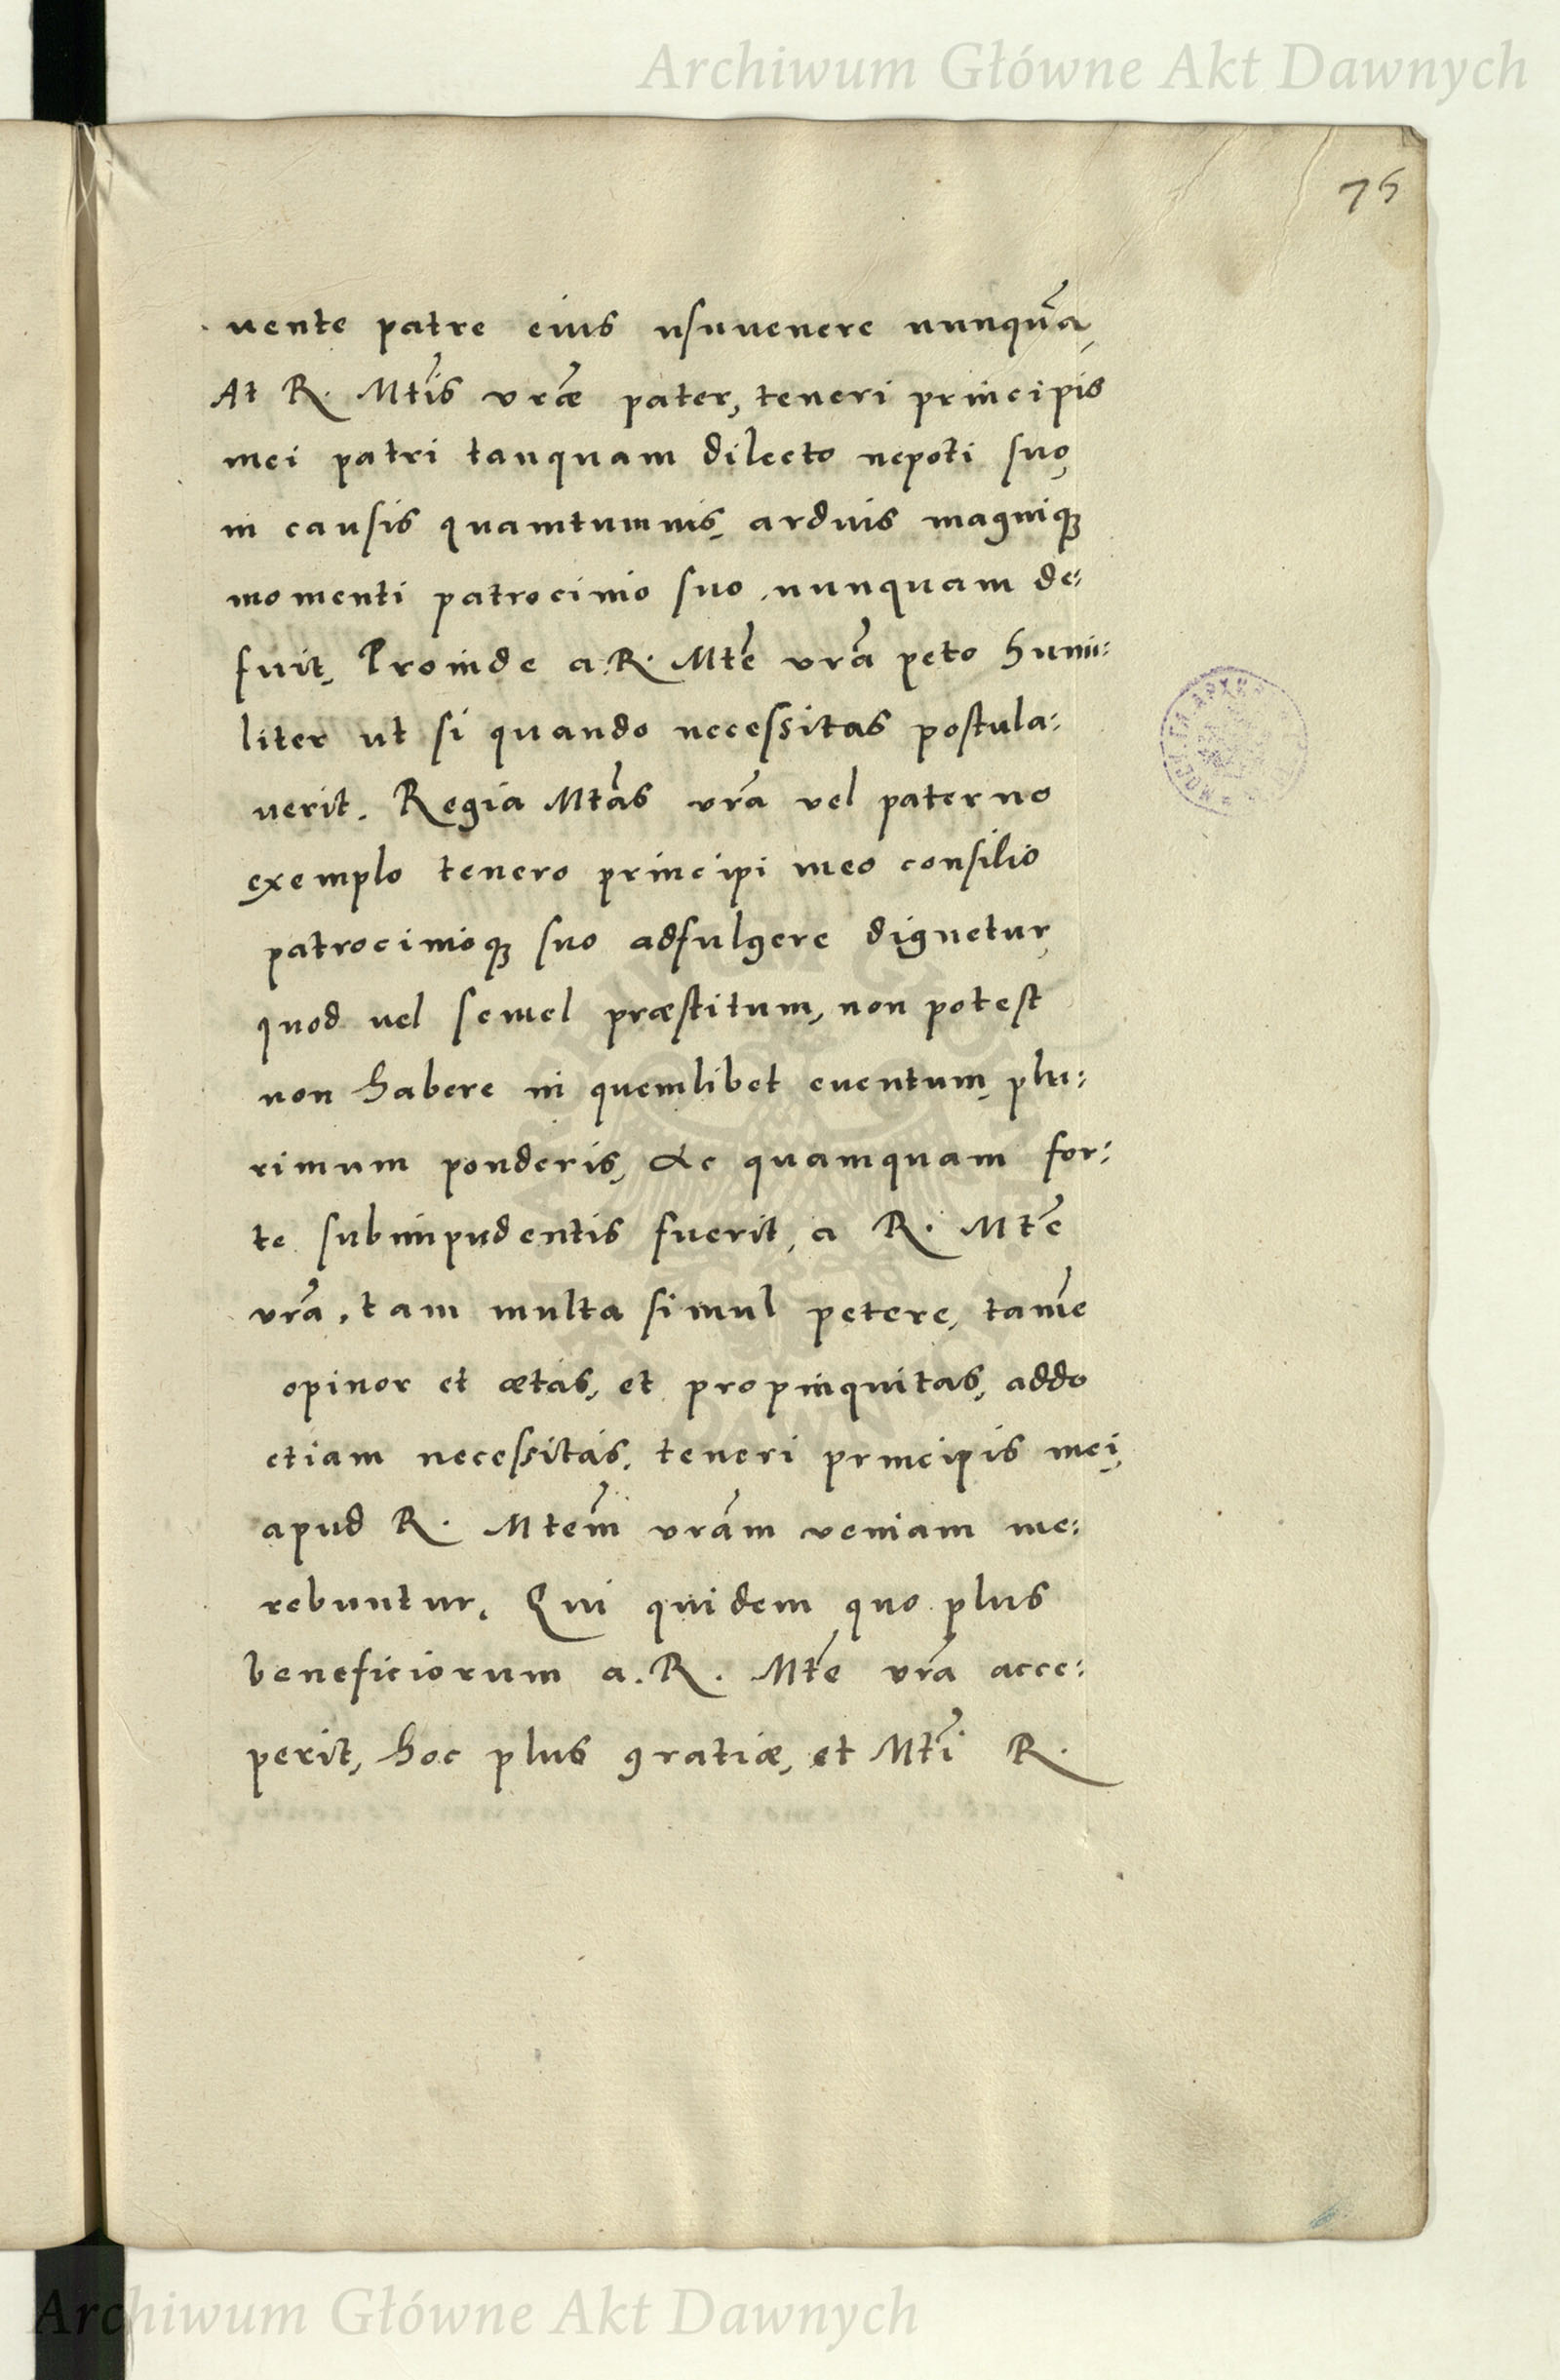 Archiwum Główne Akt Dawnych
75
uente patre eius usuuenere nunqua᷉,
At R. Mti᷉s vrae᷉ pater, teneri principis
mei patri tanquam dilecto nepoti suo,
in causis quamtumuis, arduis magniqꝫ
momenti patrocinio suo nunquam de:
fuit, Proinde a. R. Mte᷉ vra᷉ peto humi:
liter ut si quando necessitas postula:
uerit. Regia Mta᷉s vra᷉ vel paterno
exemplo tenero principi meo consilio
patrocinioqꝫ suo adfulgere dignetur,
quod uel semel præstitum, non potest
non habere in quemlibet euentum, plu:
rimum ponderis, Ac quamquam for:
te subimpudentis fuerit, a R. Mte᷉
vra᷉, tam multa simul petere, tame᷉
opinor et ætas, et propinquitas, addo
etiam necessitas, teneri principis mei,
apud R. Mtem᷉ vram᷉ veniam me:
rebuntur, Qui quidem quo plus
beneficiorum a. R. Mte᷉ vra᷉ acce:
perit, hoc plus gratiæ, et Mti᷉ R.
Archiwum Główne Akt Dawnych